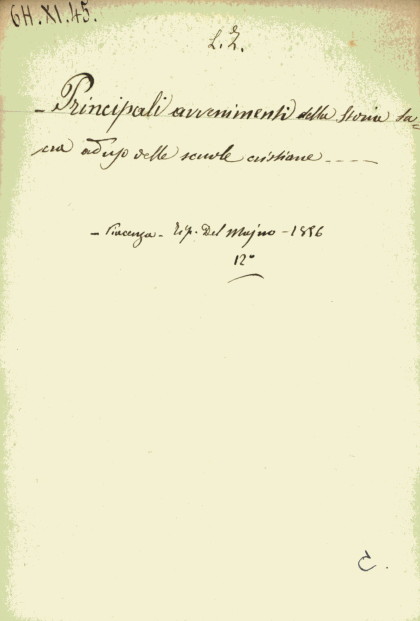 6H.XI.45.
L. Z.
- Principali avvenimenti della Storia Sa-
cra ad uso delle scuole cristiane ----
- Piacenza - Tip. Del Majno - 1856
12°
C.